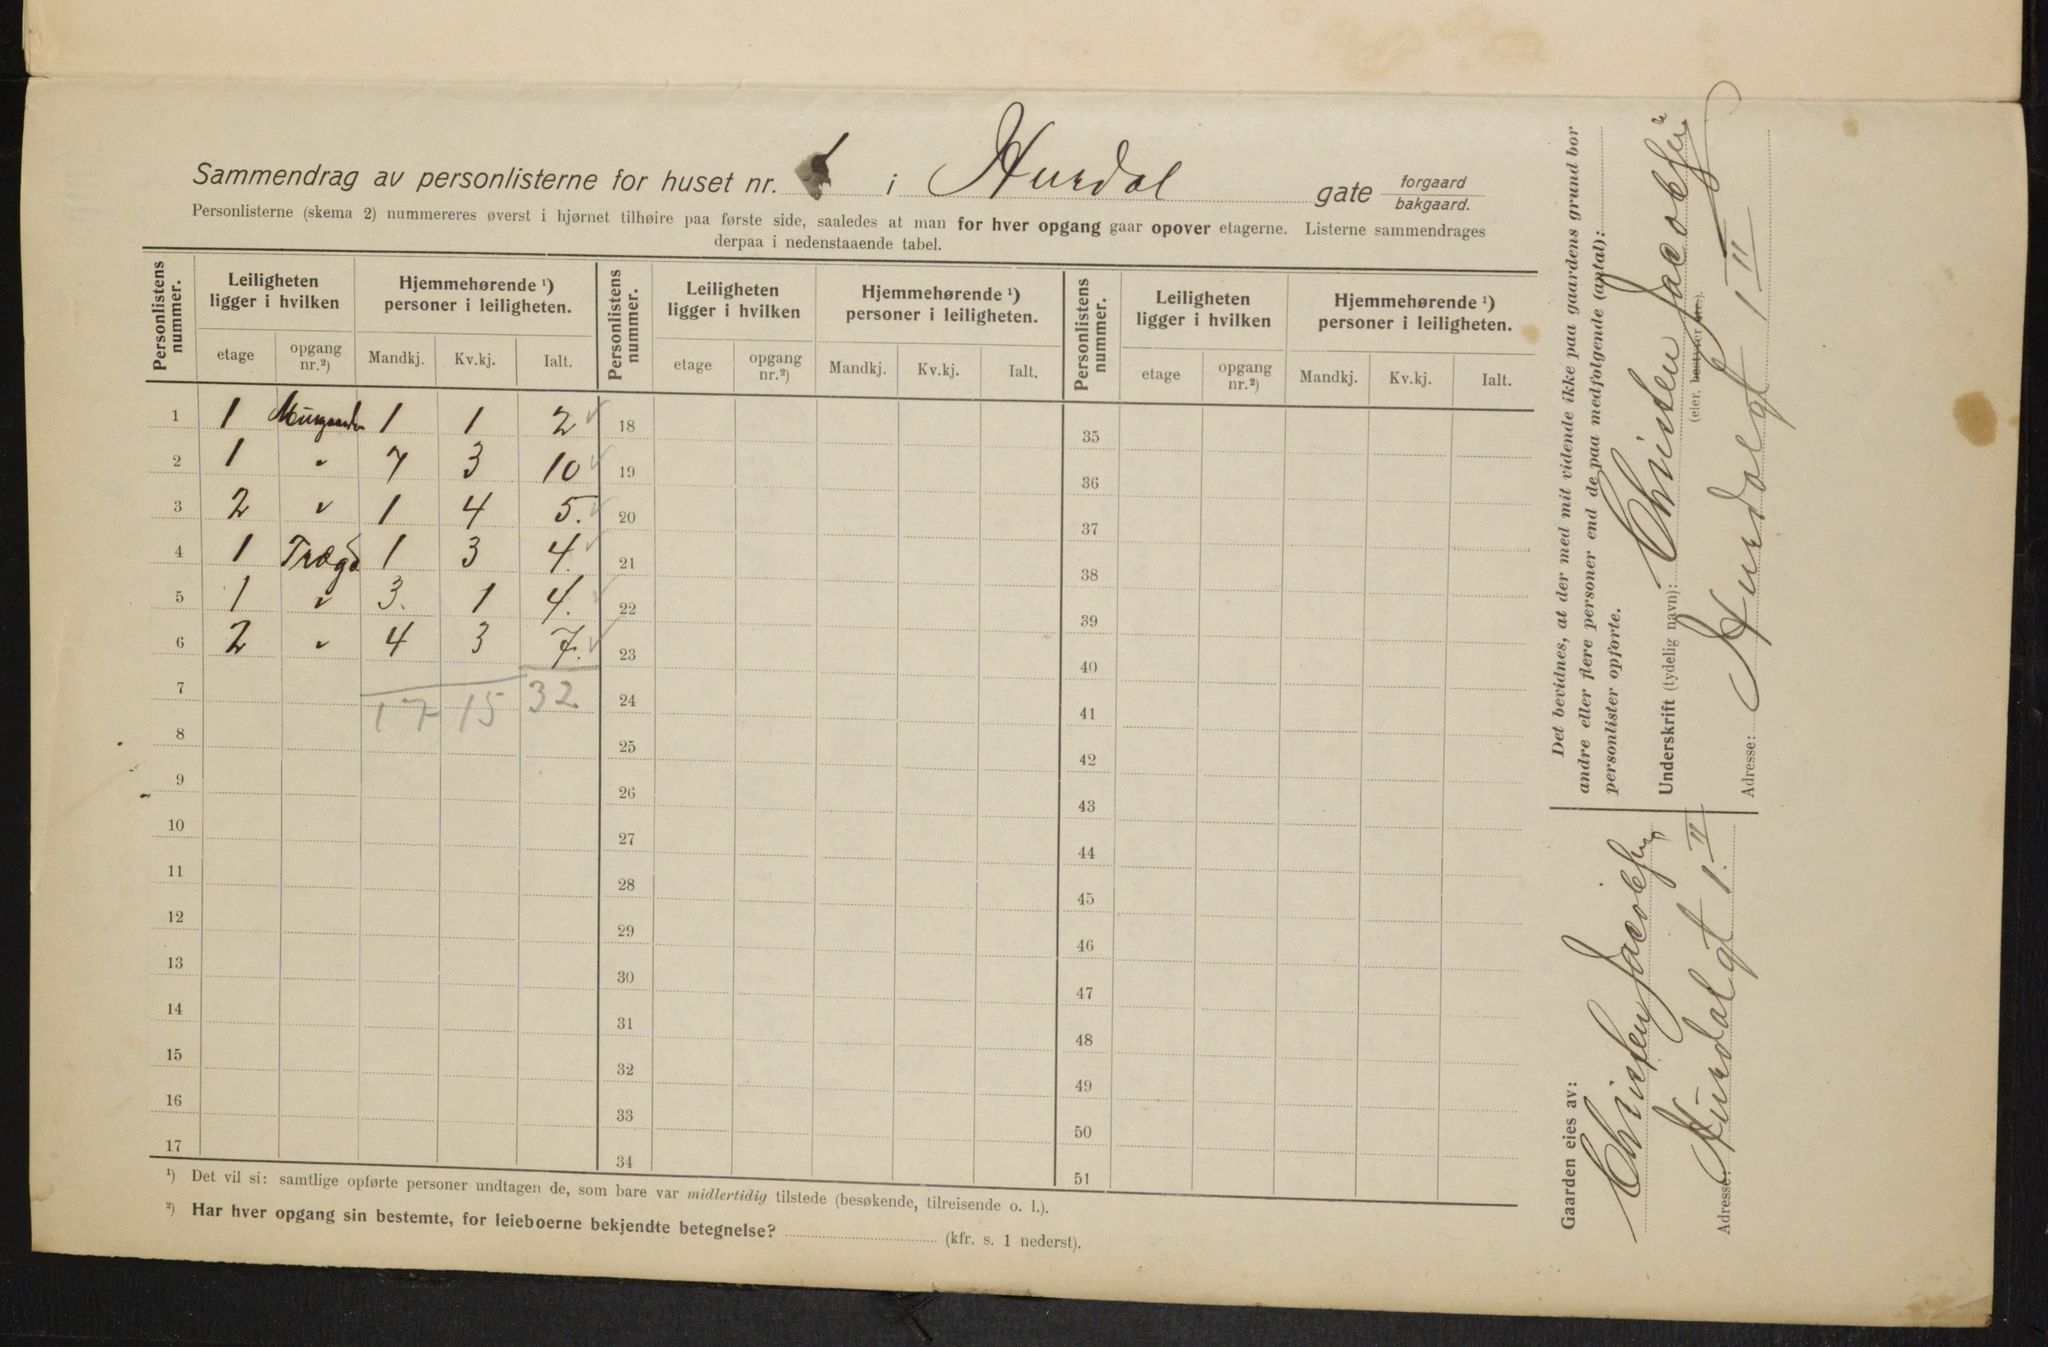 Sammendrag av personlisterne for huset nr. 1 i Hurdal gate forgaard bakgaard.
Personlisterne (skema 2) nummereres øverst i hjørnet tilhøire paa første side, saaledes at man for hver opgang gaar opover etagerne. Listerne sammendrages
derpaa i nedenstaaende tabel.
Personlistens nummer. Leiligheten ligger i hvilken Hjemmehørende ¹) personer i leiligheten. Personlistens nummer. Leiligheten ligger i hvilken Hjemmehørende ¹) personer i leiligheten. Personlistens nummer. Leiligheten ligger i hvilken Hjemmehørende ¹) personer i leiligheten.
etage opgang nr.²) Mandkj. Kv.kj. Ialt. etage opgang nr.²) Mandkj. Kv.kj. Ialt. etage opgang nr.²) Mandkj. Kv.kj. Ialt.
1 1 Murgaarden 1 1 2 ✓ 18 35
2 1 " 7 3 10 ✓ 19 36
3 2 " 1 4 5. ✓ 20 37
4 1 Trægd 1 3 4. ✓ 21 38
5 1 " 3. 1 4. ✓ 22 39
6 2 " 4 3 7. ✓ 23 40
7 17 15 32 24 41
8 25 42
9 26 43
10 27 44
11 28 45
12 29 46
13 30 47
14 31 48
15 32 49
16 33 50
17 34 51
¹) Det vil si: samtlige opførte personer undtagen de, som bare var midlertidig tilstede (besøkende, tilreisende o. l.).
²) Har hver opgang sin bestemte, for leieboerne bekjendte betegnelse? (kfr. s. 1 nederst).
Det bevidnes, at der med mit vidende ikke paa gaardens grund bor
andre eller flere personer end de paa medfølgende (antal):
personlister opførte.
Underskrift (tydelig navn): Christen Jacobsen
(eier, bestyrer etc.).
Adresse: Hurdalgt 1 II
Gaarden eies av:
Christen Jacobsen
Adresse: Hurdalgt 1. II